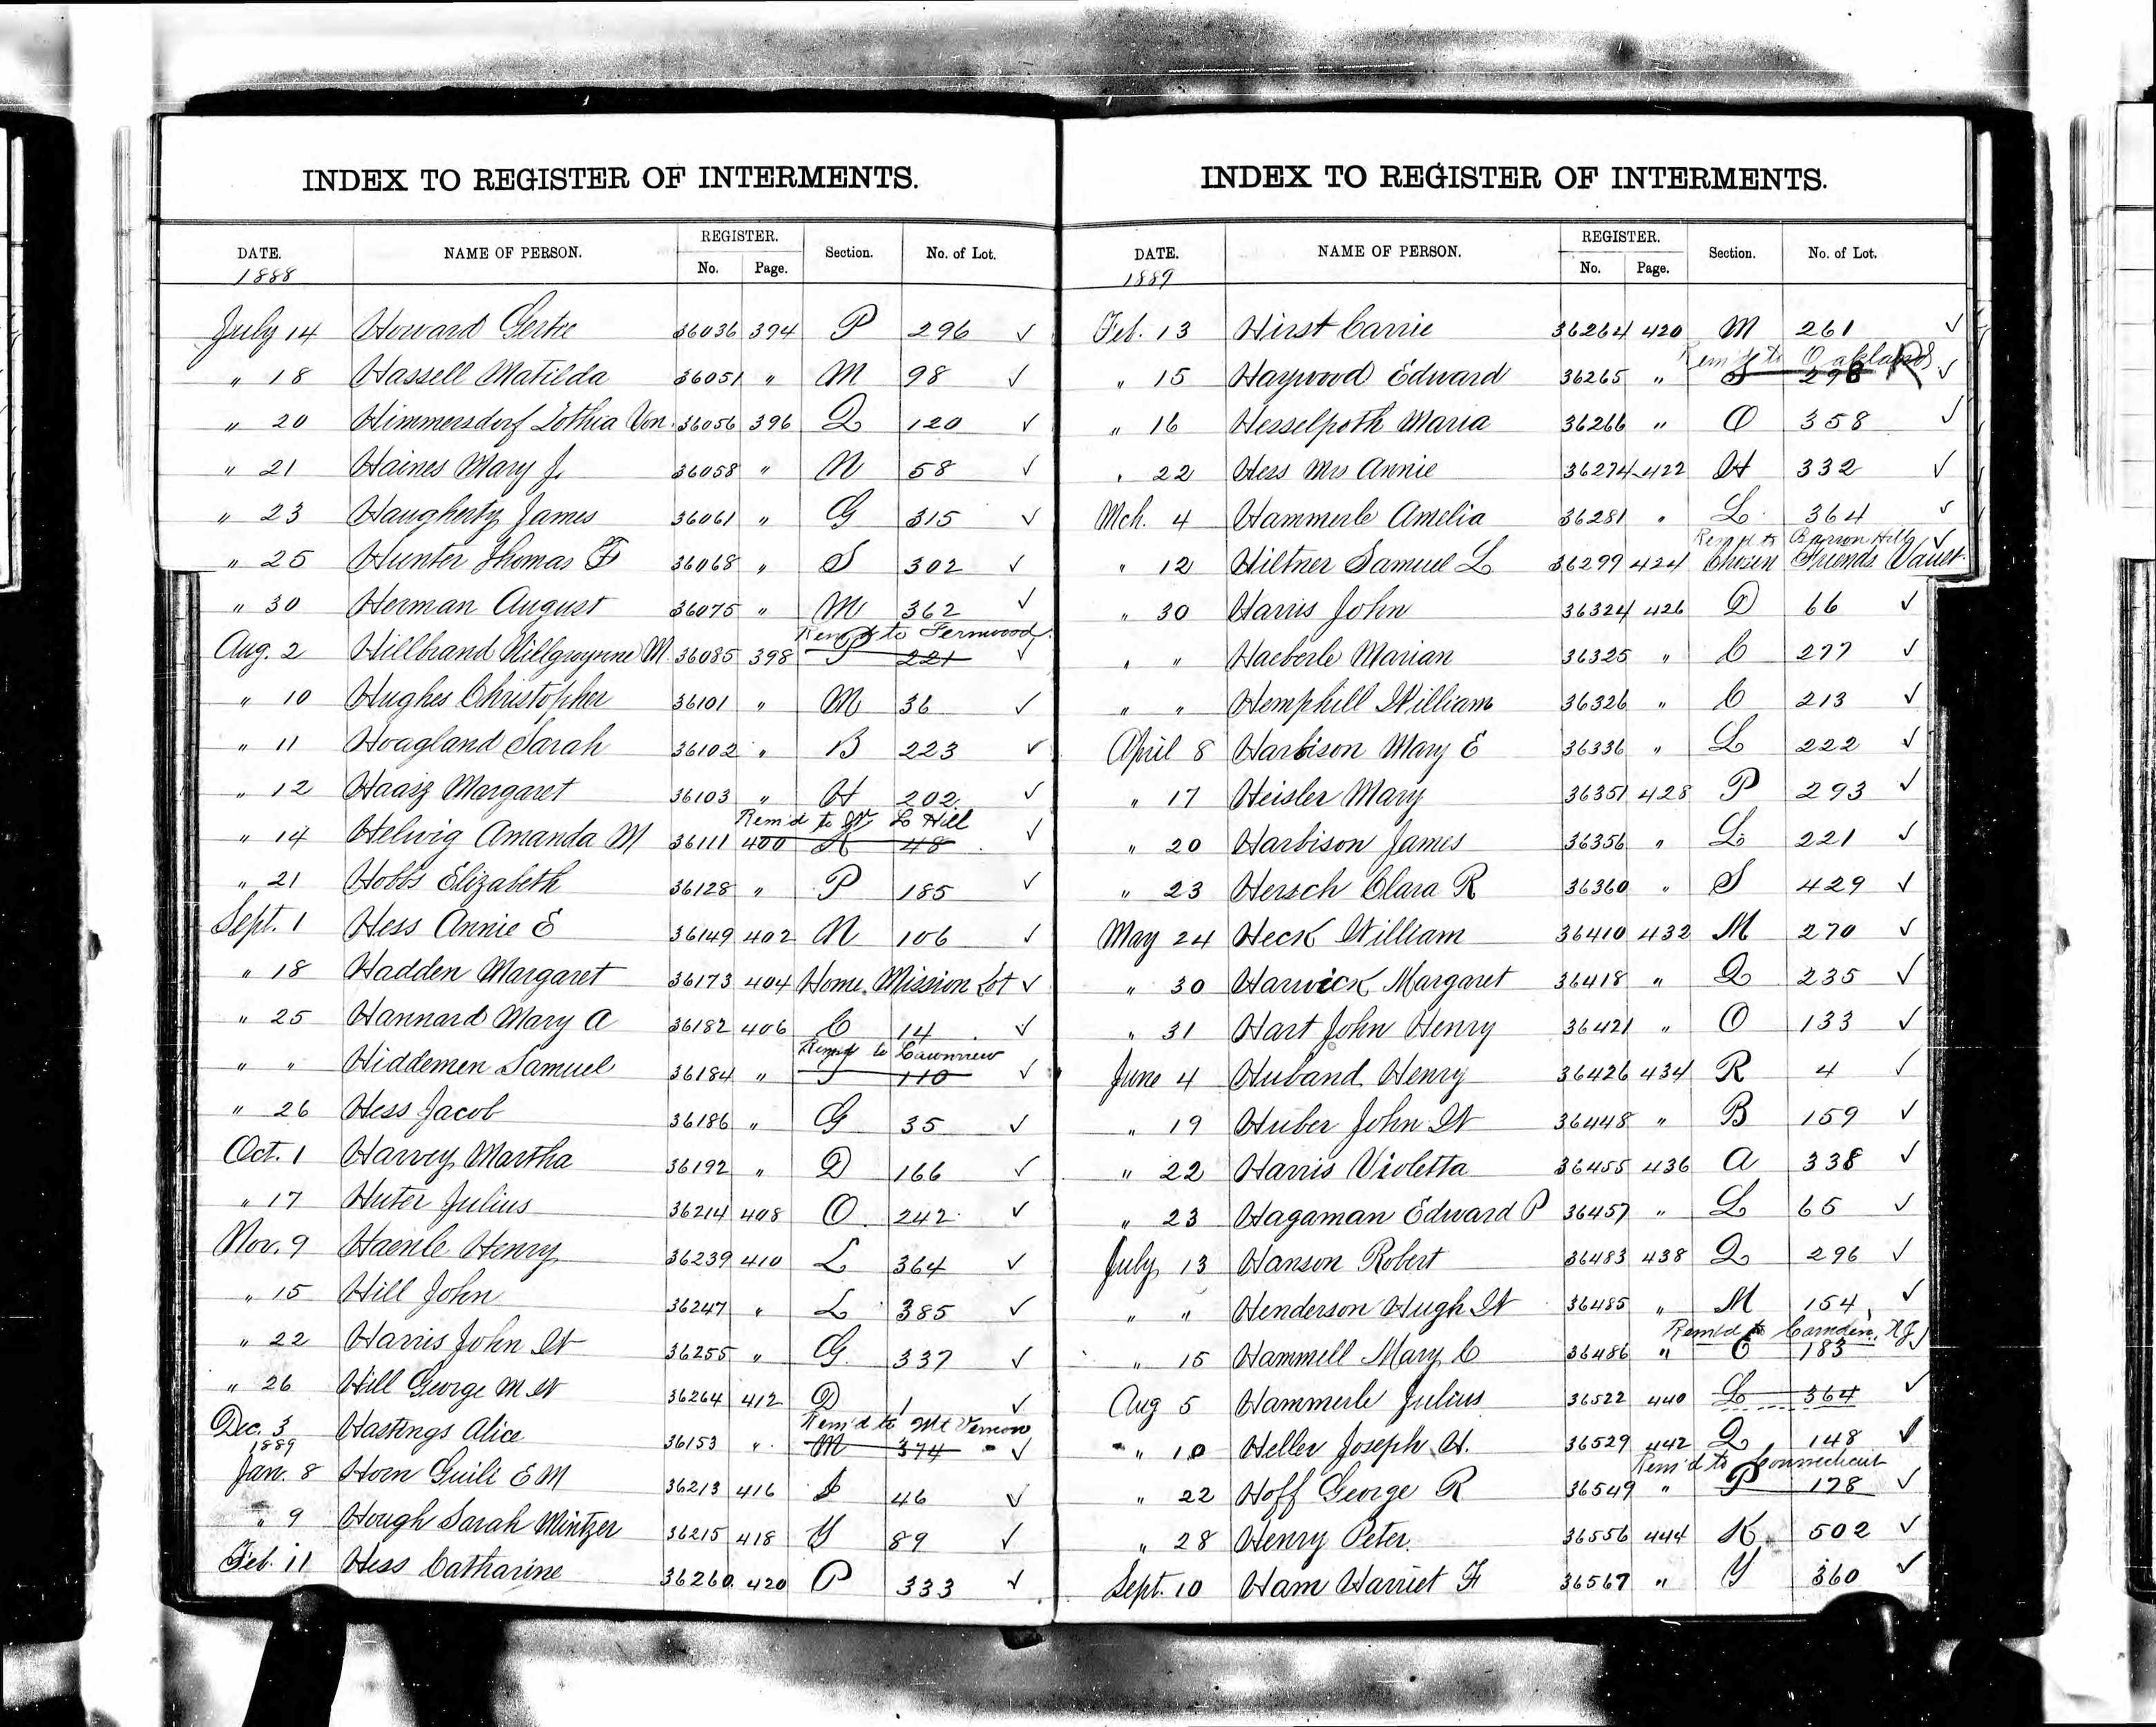 INDEX TO REGISTER OF INTERMENTS.
DATE. NAME OF PERSON. REGISTER. No. Page. Section. No. of Lot.
1888
July 14 Howard Gertie 36036 394 P 296 ✓
" 18 Hassell Matilda 36051 " M 98 ✓
" 20 Himmersdorf Lothia Von 36056 396 Q 120 ✓
" 21 Haines Mary J. 36058 " N 58 ✓
" 23 Haugherty James 36061 " G 315 ✓
" 25 Hunter Thomas F 36068 " S 302 ✓
" 30 Herman August 36075 " M 362 ✓
Rem'd to Fernwood
Aug. 2 Hillbrand Hillgwynne M. 36085 398 P 221 ✓
" 10 Hughes Christopher 36101 " M 36 ✓
" 11 Hoagland Sarah 36102 " B 223 ✓
" 12 Haasz Margaret 36103 " H 202 ✓
Rem'd to W. L Hill
" 14 Helwig Amanda M 36111 400 A 48 ✓
" 21 Hobbs Elizabeth 36128 " P 185 ✓
Sept. 1 Hess Annie E 36149 402 N 106 ✓
" 18 Hadden Margaret 36173 404 Home Mission Lot ✓
" 25 Hannard Mary A 36182 406 C 14 ✓
Rem'd to Lawnview
" " Hiddemen Samuel 36184 " 110 ✓
" 26 Hess Jacob 36186 " G 35 ✓
Oct. 1 Harvey Martha 36192 " D 166 ✓
" 17 Huter Julius 36214 408 O 242 ✓
Nov. 9 Haenle Henry 36239 410 L 364 ✓
" 15 Hill John 36247 " L 385 ✓
" 22 Harris John W 36255 " G 337 ✓
" 26 Hill George M W 36264 412 D 1 ✓
Rem'd to Mt Vernon
Dec. 3 Hastings Alice 36153 " M 374 ✓
1889
Jan. 8 Horn Guili E M 36213 416 I 46 ✓
" 9 Hough Sarah Mintzer 36215 418 Y 89 ✓
Feb. 11 Hess Catharine 36260 420 P 333 ✓
INDEX TO REGISTER OF INTERMENTS.
DATE. NAME OF PERSON. REGISTER. No. Page. Section. No. of Lot.
1889
Feb. 13 Hirst Carrie 36264 420 M 261 ✓
Rem'd to Oakland
" 15 Haywood Edward 36265 " S 298 R ✓
" 16 Hesselpoth Maria 36266 " O 358 ✓
" 22 Hess Mrs Annie 36274 422 H 332 ✓
Mch. 4 Hammerle Amelia 36281 " L 364 ✓
Rem'd to Barron Hill ✓
" 12 Hiltner Samuel L 36299 424 Chozen Friends Vault.
" 30 Harris John 36324 426 D 66 ✓
" " Haeberle Marian 36325 " C 277 ✓
" " Hemphill William 36326 " C 213 ✓
April 8 Harbison Mary E 36336 " L 222 ✓
" 17 Heisler Mary 36351 428 P 293 ✓
" 20 Harbison James 36356 " L 221 ✓
" 23 Hersch Clara R 36360 " S 429 ✓
May 24 Heck William 36410 432 M 270 ✓
" 30 Harwick Margaret 36418 " Q 235 ✓
" 31 Hart John Henry 36421 " O 133 ✓
June 4 Huband Henry 36426 434 R 4 ✓
" 19 Huber John W 36448 " B 159 ✓
" 22 Harris Violetta 36455 436 A 338 ✓
" 23 Hagaman Edward P 36457 " L 65 ✓
July 13 Hanson Robert 36483 438 Q 296 ✓
" " Henderson Hugh W 36485 " M 154 ✓
Rem'd to Camden, N.J.
" 15 Hammell Mary C 36486 " C 183
Aug 5 Hammerle Julius 36522 440 L 364 ✓
" 10 Heller Joseph H. 36529 442 Q 148 ✓
Rem'd to Connecticut
" 22 Hoff George R 36549 " P 178 ✓
" 28 Henry Peter 36556 444 K 502 ✓
Sept. 10 Ham Harriet F 36567 " Y 360 ✓